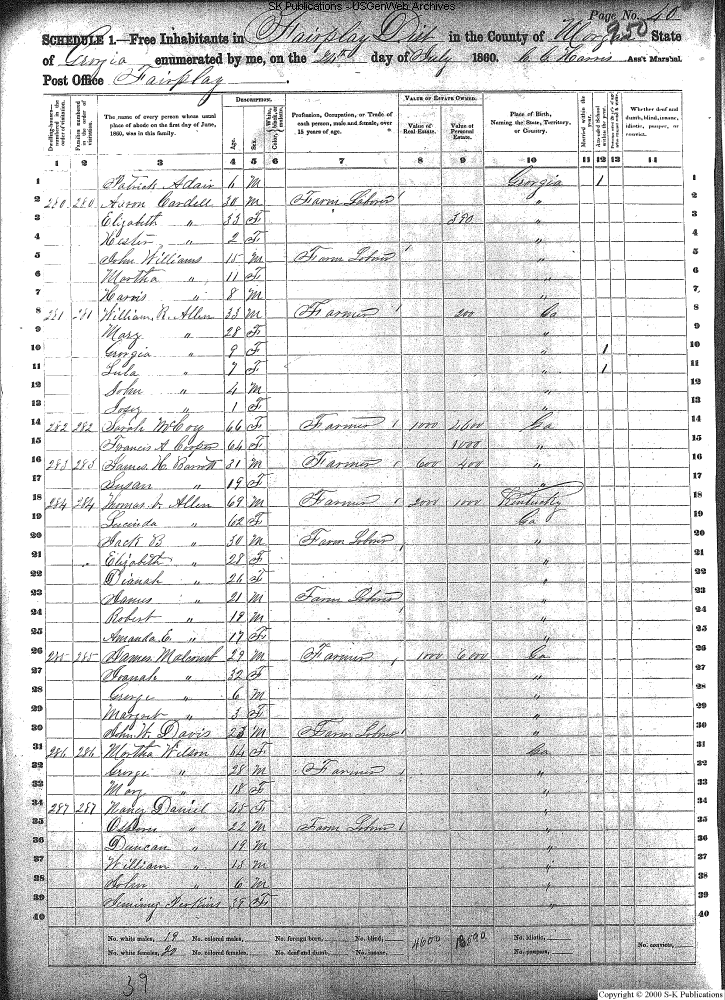 SK Publications - USGenWeb Archives
Page No. 40
350
SCHEDULE 1.—Free Inhabitants in Fairplay Dist in the County of Morgan State
of Georgia enumerated by me, on the 24th day of July 1860. C. C. Harris Ass't Marshal.
Post Office Fairplay
Dwelling-houses—numbered in the order of visitation.
Families numbered in the order of visitation.
The name of every person whose usual place of abode on the first day of June, 1860, was in this family.
DESCRIPTION.
Age.
Sex.
Color, White, black, or mulatto.
Profession, Occupation, or Trade of each person, male and female, over 15 years of age.
VALUE OF ESTATE OWNED.
Value of Real Estate.
Value of Personal Estate.
Place of Birth, Naming the State, Territory, or Country.
Married within the year.
Attended School within the year.
Whether deaf and dumb, blind, insane, idiotic, pauper, or convict.
1 2 3 4 5 6 7 8 9 10 11 12 13 14
1 Patrick Adair 6 M Georgia 1 1
2 280 280 Aaron Cardell 30 M Farm Laborer " 2
3 Elizabeth " 33 F 380 " 3
4 Hester " 2 F " 4
5 John Williams 15 M Farm Laborer " 5
6 Martha " 11 F " 6
7 Harris " 8 M " 7
8 281 281 William R. Allen 33 M Farmer 200 Ga 8
9 Mary " 28 F " 9
10 Georgia " 9 F " 1 10
11 Lula " 7 F " 1 11
12 John " 4 M " 12
13 " 1 F " 13
14 282 282 Sarah McCoy 66 F Farmer 1000 2600 Ga 14
15 Francis A Cooper 64 F 1000 " 15
16 283 283 James H. Barrett 31 M Farmer 600 400 " 16
17 Susan " 19 F " 17
18 284 284 Thomas Allen 69 M Farmer 2000 1000 Kentucky 18
19 Lucinda " 62 F Ga 19
20 Jack B " 30 M Farm Laborer " 20
21 Elizabeth " 28 F " 21
22 Dianah " 26 F " 22
23 James " 21 M Farm Laborer " 23
24 Robert " 19 M " 24
25 Amanda E. " 17 F " 25
26 285 285 James Malcomb 29 M Farmer 1000 6000 Ga 26
27 " 32 F " 27
28 George " 6 M " 28
29 Margret " 3 F " 29
30 John W. Davis 23 M Farm Laborer " 30
31 286 286 Martha Wilson 64 F Ga 31
32 George " 28 M Farmer " 32
33 Mary " 18 F " 33
34 287 287 Nancy Daniel 48 F " 34
35 Osborn " 22 M Farm Laborer " 35
36 Duncan " 19 M " 36
37 William " 13 M " 37
38 John " 6 M " 38
39 Perkins 39 F " 39
40 40
No. white males, 19 No. colored males, No. foreign born, No. blind, 4600 No. idiotic, No. convicts,
No. white females, 20 No. colored females, No. deaf and dumb, No. insane, No. paupers,
39
Copyright © 2000 S-K Publications